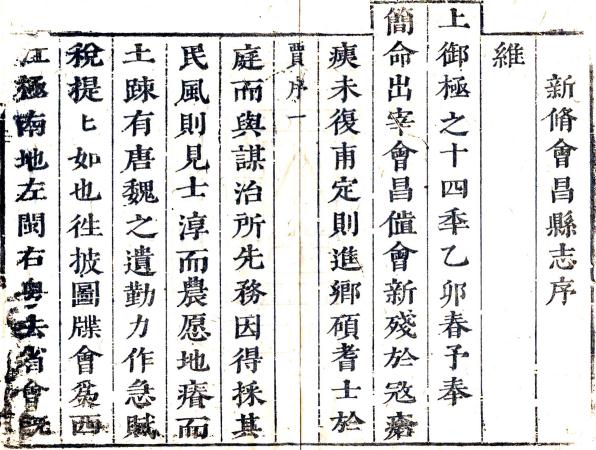 新脩會昌縣志序
維
上御極之十四秊乙卯春予奉
簡命出宰會昌值會新殘於寇瘡
痍未復甫定則進鄉碩耆士於
賈序一
庭而與謀治所先務因得採其
民風則見士淳而農愿地瘠而
土踈有唐魏之遺勤力作急賦
稅提〻如也徃披圖牒會爲西
江極南地左閩右粵去省會旣